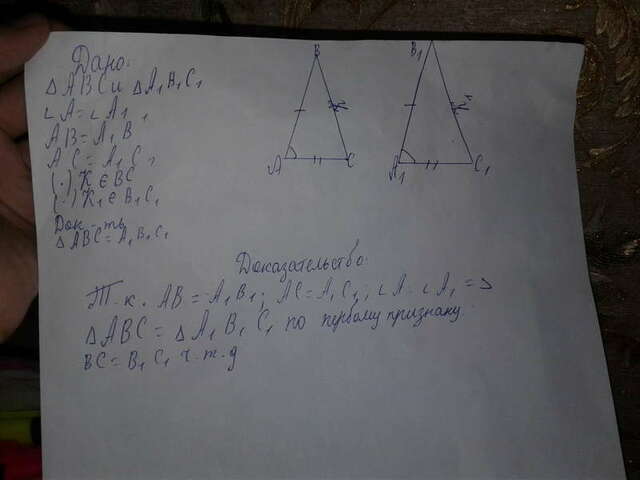 Дано:
△ABC и △A₁B₁C₁
∠A=∠A₁,
AB=A₁B
AC=A₁C₁
(·) K ∈ BC
(·) K₁ ∈ B₁C₁
Док-ть
△ABC=A₁B₁C₁
B
A
C
B₁
A₁
C₁
Доказательство:
Т.к. AB=A₁B₁; AC=A₁C₁; ∠A=∠A₁ =>
△ABC = △A₁B₁C₁ по первому признаку
BC=B₁C₁ ч.т.д